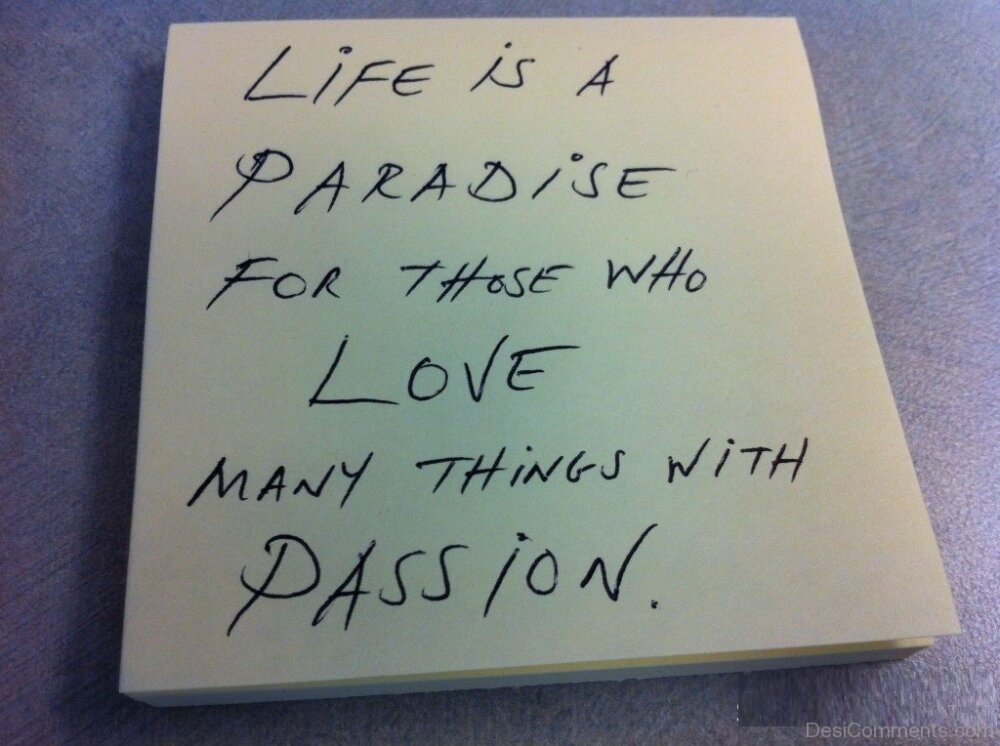 LiFE iS A
PARADiSE
FOR THOSE WHO
LOVE
MANY THiNGS WiTH
PASSiON.
DesiComments.com